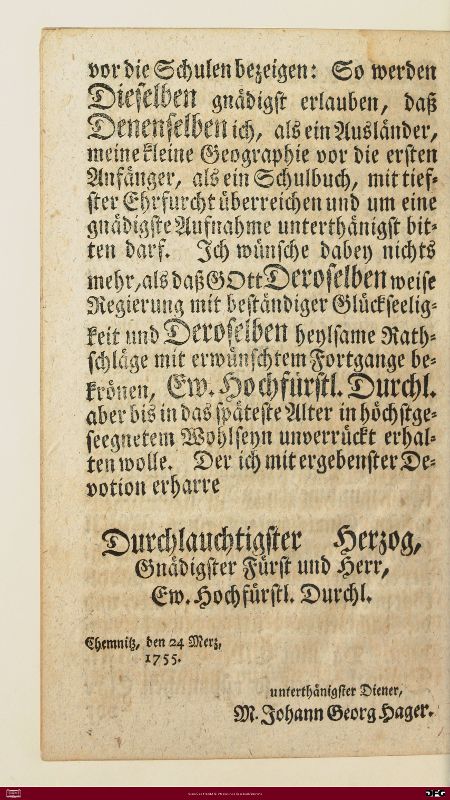 vor die Schulen bezeigen: So werden
Dieselben gnädigst erlauben, daß
Denenselben ich, als ein Ausländer,
meine kleine Geographie vor die ersten
Anfänger, als ein Schulbuch, mit tief-
ster Ehrfurcht überreichen und um eine
gnädigste Aufnahme unterthänigst bit-
ten darf. Ich wünsche dabey nichts
mehr, als daß GOtt Deroselben weise
Regierung mit beständiger Glückseelig-
keit und Deroselben heylsame Rath-
schläge mit erwünschtem Fortgange be-
krönen, Ew. Hochfürstl. Durchl.
aber bis in das späteste Alter in höchstge-
seegnetem Wohlseyn unverrückt erhal-
ten wolle. Der ich mit ergebenster De-
votion erharre
Durchlauchtigster Herzog,
Gnädigster Fürst und Herr,
Ew. Hochfürstl. Durchl.
Chemnitz, den 24 Merz,
1755.
unterthänigster Diener,
M. Johann Georg Hager.
DFG